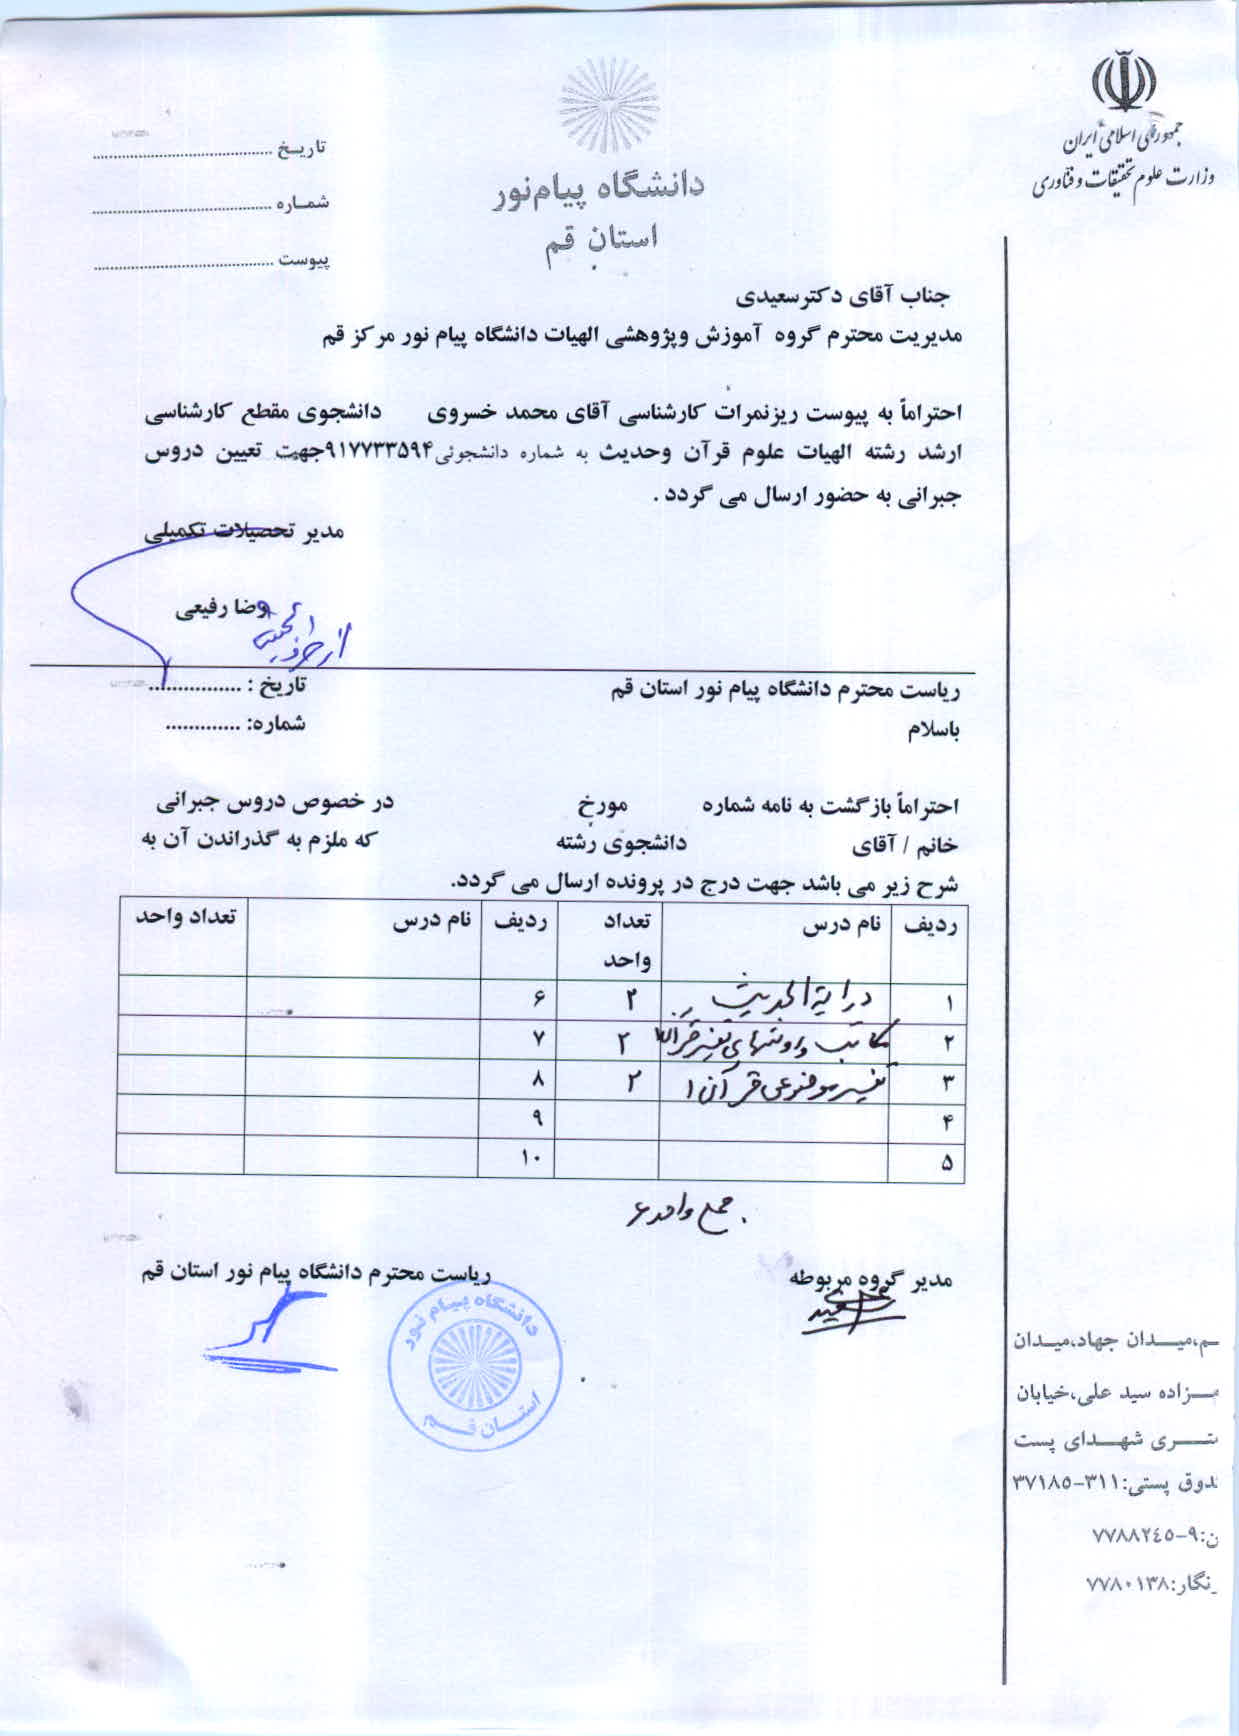 جمهوری اسلامی ایران
وزارت علوم تحقیقات و فناوری
دانشگاه پیام‌نور
استان قم
تاریخ ............
شماره ............
پیوست ............
جناب آقای دکترسعیدی
مدیریت محترم گروه آموزش وپژوهشی الهیات دانشگاه پیام نور مرکز قم
احتراماً به پیوست ریزنمرات کارشناسی آقای محمد خسروی دانشجوی مقطع کارشناسی
ارشد رشته الهیات علوم قرآن وحدیث به شماره دانشجوئی ۹۱۷۷۳۳۵۹۴جهت تعیین دروس
جبرانی به حضور ارسال می گردد .
مدیر تحصیلات تکمیلی
رضا رفیعی
از طرف
ریاست محترم دانشگاه پیام نور استان قم
تاریخ : ................
باسلام
شماره: .............
احتراماً بازگشت به نامه شماره مورخ در خصوص دروس جبرانی
خانم / آقای دانشجوی رشته که ملزم به گذراندن آن به
شرح زیر می باشد جهت درج در پرونده ارسال می گردد.
ردیف نام درس تعداد واحد ردیف نام درس تعداد واحد
۱ درایة الحدیث ۲ ۶
۲ مکاتب و روشهای تفسیر قرآن ۲ ۷
۳ تفسیر موضوعی قرآن ۱ ۲ ۸
۴ ۹
۵ ۱۰
جمع واحد ۶
مدیر گروه مربوطه
ریاست محترم دانشگاه پیام نور استان قم
سعیدی
دانشگاه پیام نور
استان قم
ـم،میـدان جهاد،میدان
ـزاده سید علی،خیابان
ـتری شهدای پست
ـدوق پستی:۳۱۱-۳۷۱۸۵
ن:۹-۷۷۸۸۲۴۵
ـنگار:۷۷۸۰۱۳۸